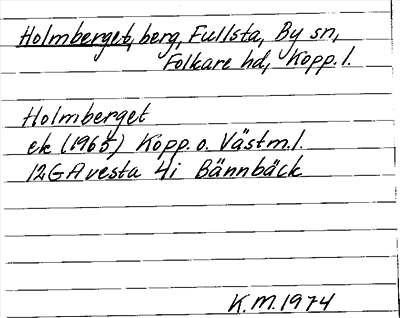 Holmberget, berg, Fullsta, By sn,
Folkare hd, Kopp. l.
Holmberget
ek (1965) Kopp. o. Västm. l.
12G Avesta 4i Bännbäck
K.M. 1974